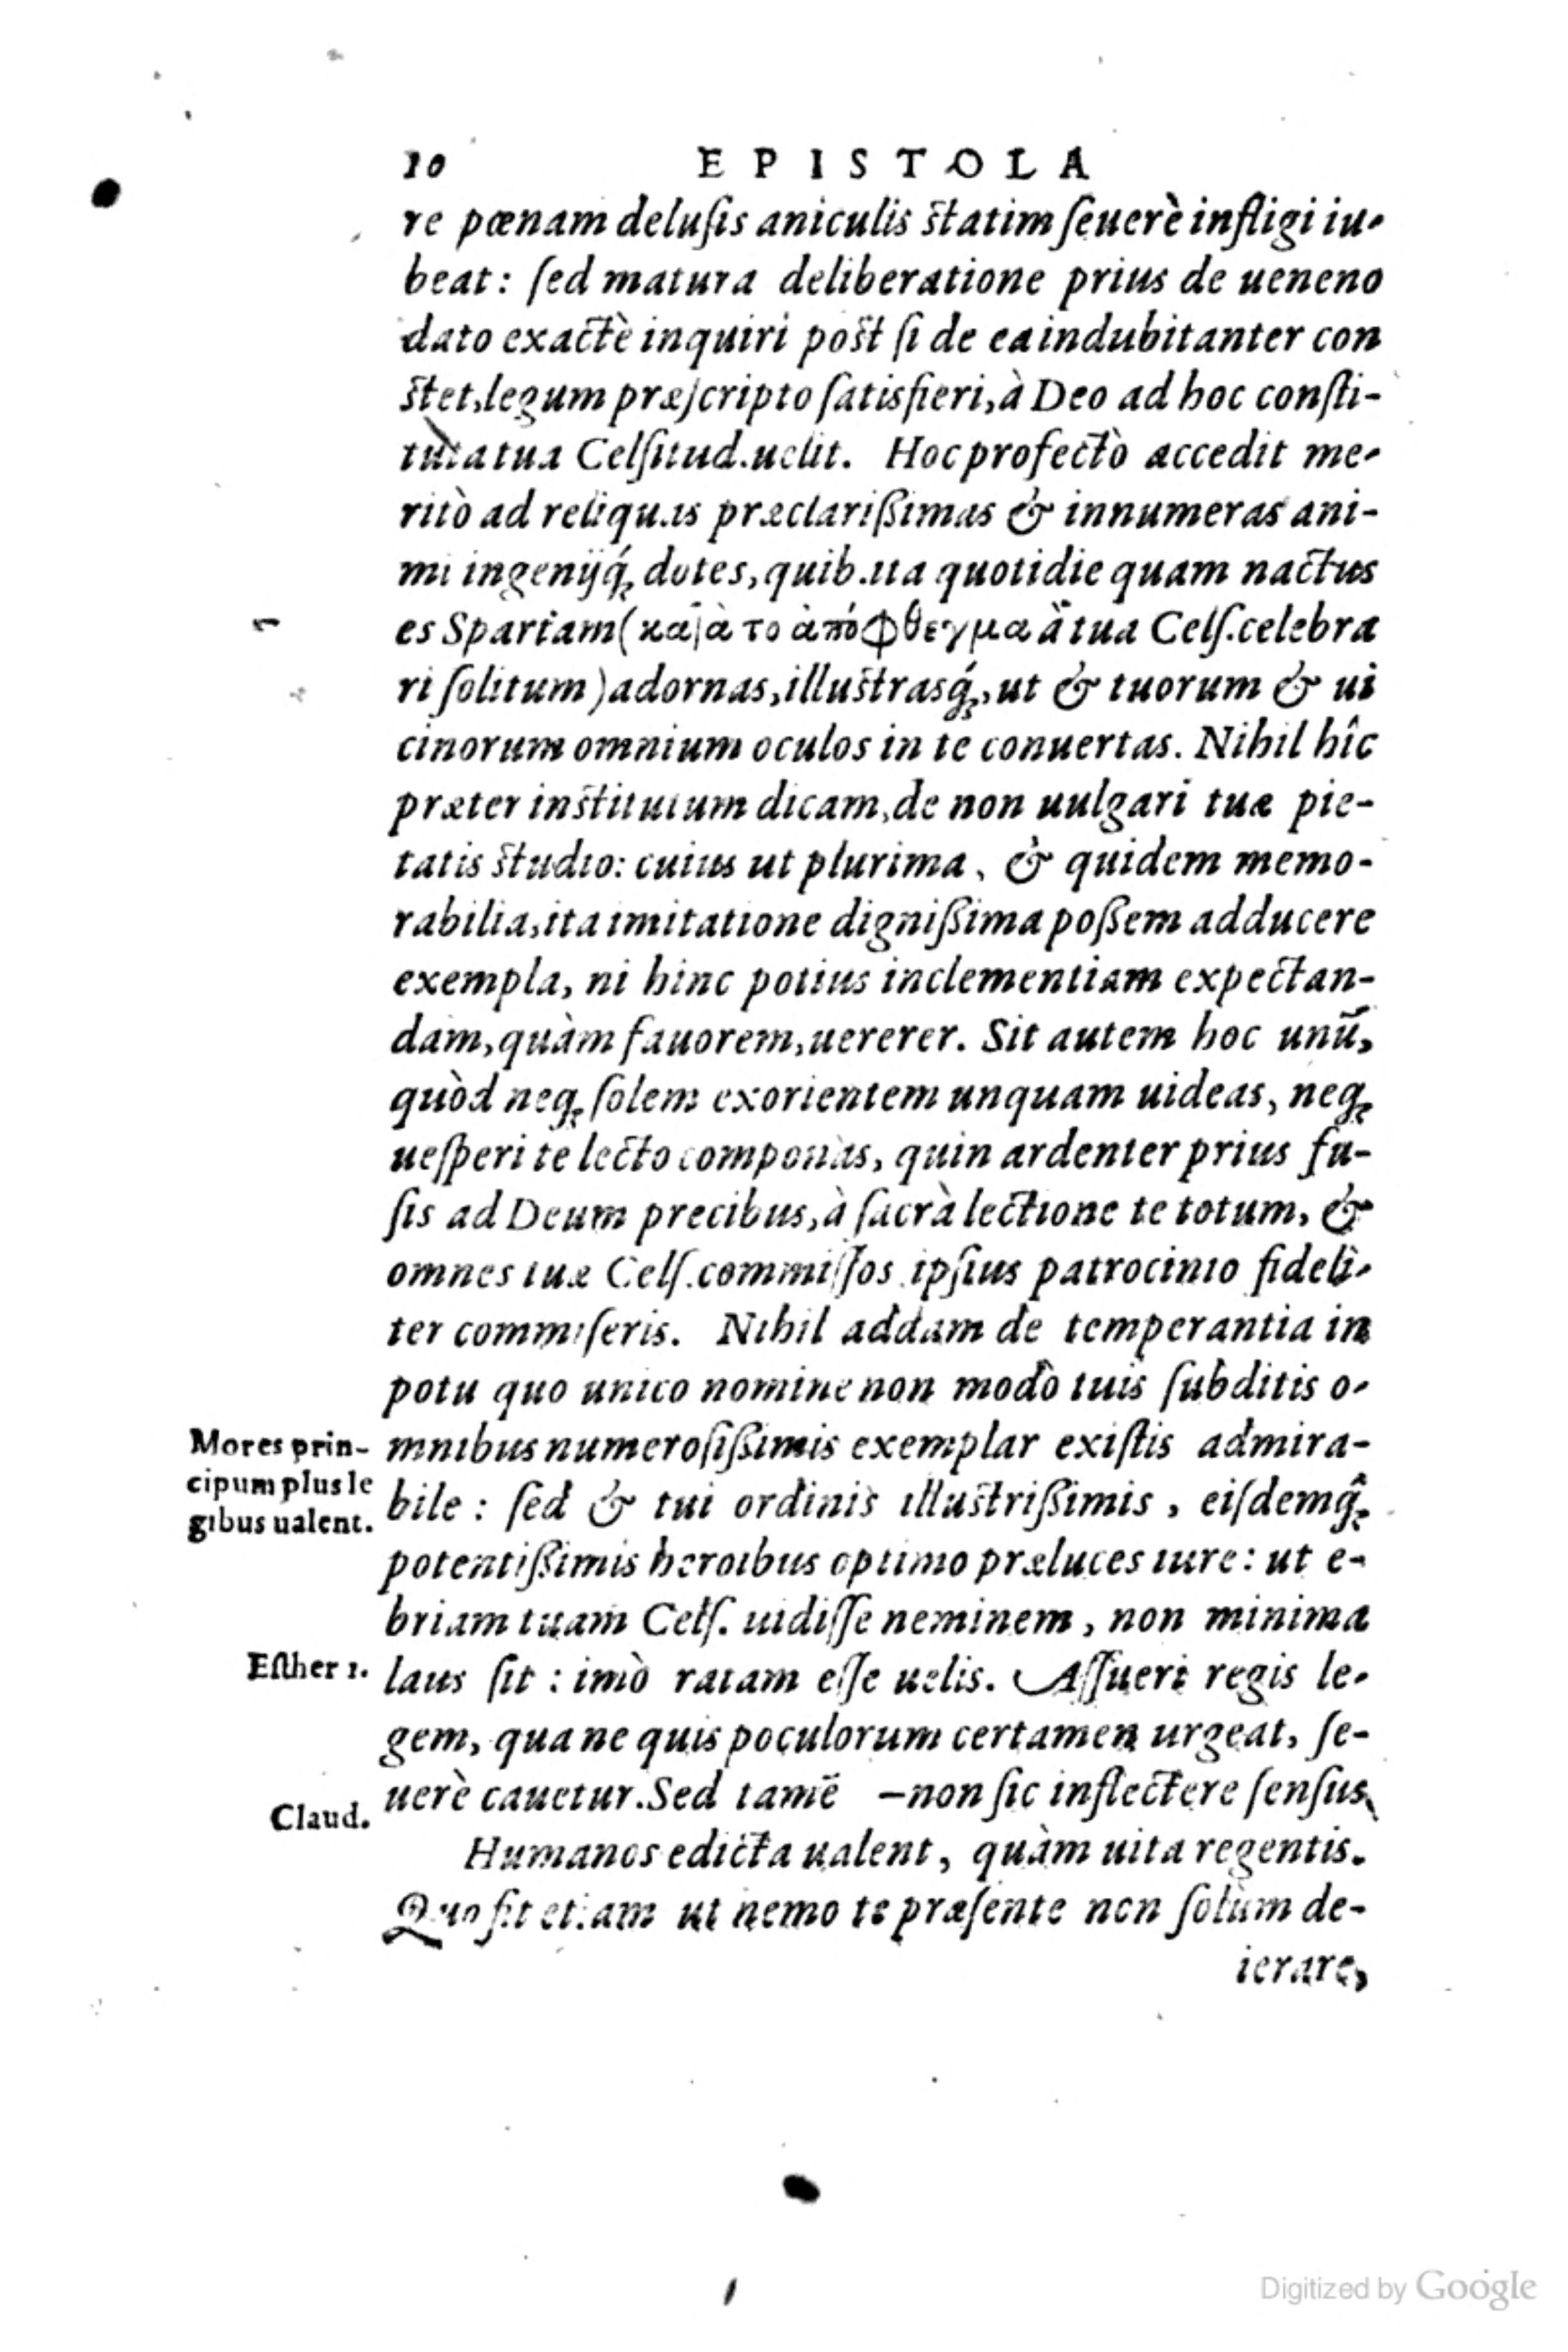 10 EPISTOLA
re pœnam deluſis aniculis ſtatim ſeuerè infligi iu-
beat: ſed matura deliberatione prius de ueneno
dato exactè inquiri poſt ſi de ea indubitanter con
ſtet, legum præſcripto ſatisfieri, à Deo ad hoc conſti-
tuta tua Celſitud. uelit. Hoc profectò accedit me-
ritò ad reliquas præclarißimas & innumeras ani-
mi ingenijq́ꝫ dotes, quib. ita quotidie quam nactus
es Spartam (καλὰ το ἀπόφθεγμα ἃ tua Celſ. celebra
ri ſolitum) adornas, illuſtrasq́ꝫ, ut & tuorum & ui
cinorum omnium oculos in te conuertas. Nihil hîc
præter inſtitutum dicam, de non uulgari tuæ pie-
tatis ſtudio: cuius ut plurima, & quidem memo-
rabilia, ita imitatione dignißima poßem adducere
exempla, ni hinc potius inclementiam expectan-
dam, quàm fauorem, uererer. Sit autem hoc unū,
quòd neqꝫ ſolem exorientem unquam uideas, neqꝫ
ueſperi te lecto componas, quin ardenter prius fu-
ſis ad Deum precibus, à ſacrà lectione te totum, &
omnes tuæ Celſ. commiſſos ipſius patrocinio fideli-
ter commiſeris. Nihil addam de temperantia in
potu quo unico nomine non modò tuis ſubditis o-
Mores prin-
cipum plus le
gibus ualent.
mnibus numeroſißimis exemplar exiſtis admira-
bile: ſed & tui ordinis illuſtrißimis, eiſdemq̂ꝫ
potentißimis heroibus optimo præluces iure: ut e-
briam tuam Celſ. uidiſſe neminem, non minima
Eſther 1.
laus ſit: imò ratam eſſe uelis. Aſſueri regis le-
gem, qua ne quis poculorum certamen urgeat, ſe-
uerè cauetur. Sed tamē —non ſic inflectere ſenſus
Claud.
Humanos edicta ualent, quàm uita regentis.
Quo fit etiam ut nemo te præſente non ſolùm de-
ierare,
Digitized by Google